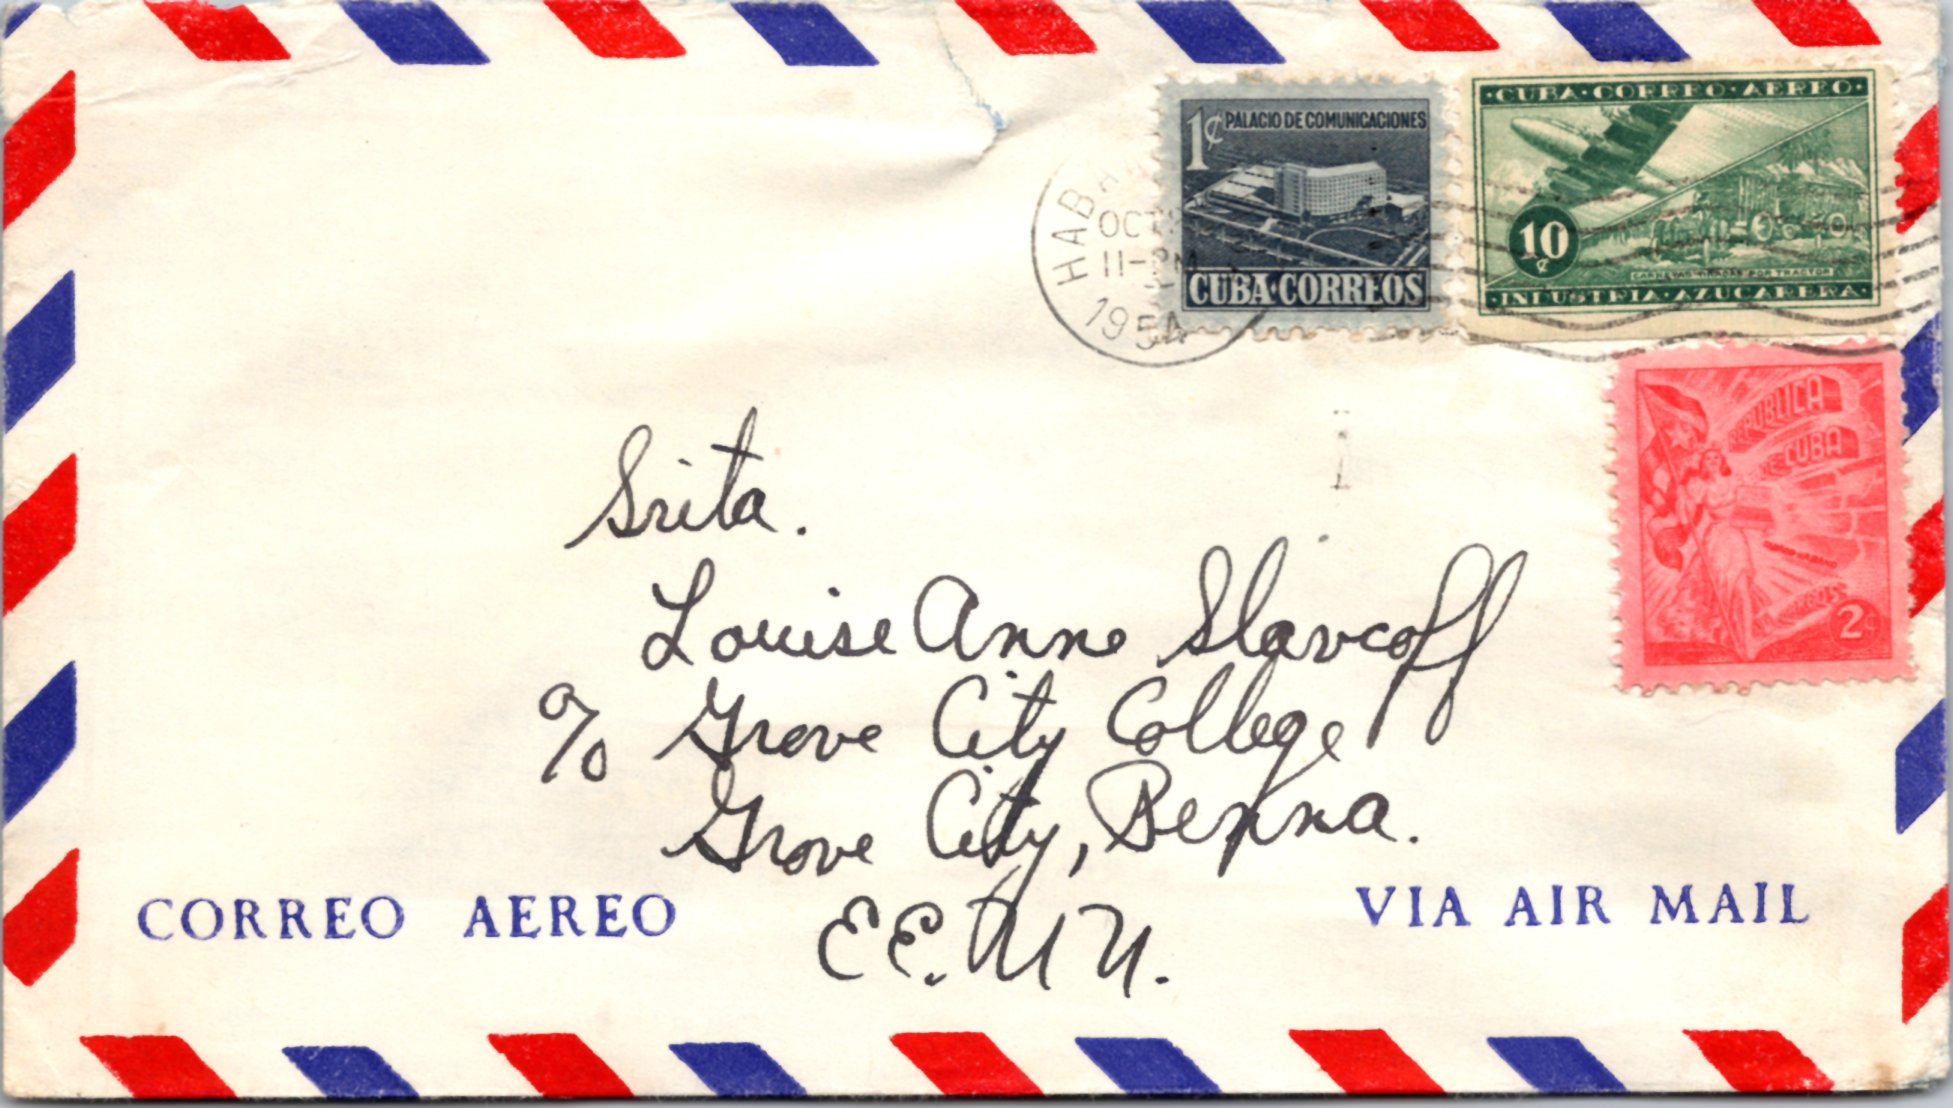 1¢ PALACIO DE COMUNICACIONES
CUBA·CORREOS
·CUBA·CORREO·AEREO·
10
¢
CARRETAS TIRADAS POR TRACTOR
·INDUSTRIA·AZUCARERA·
OCT
11-PM
1954
REPUBLICA
DE CUBA
CORREOS
2¢
Srita.
Louise Anne Slavcoff
c/o Grove City College
Grove City, Penna.
EE. UU.
CORREO AEREO
VIA AIR MAIL